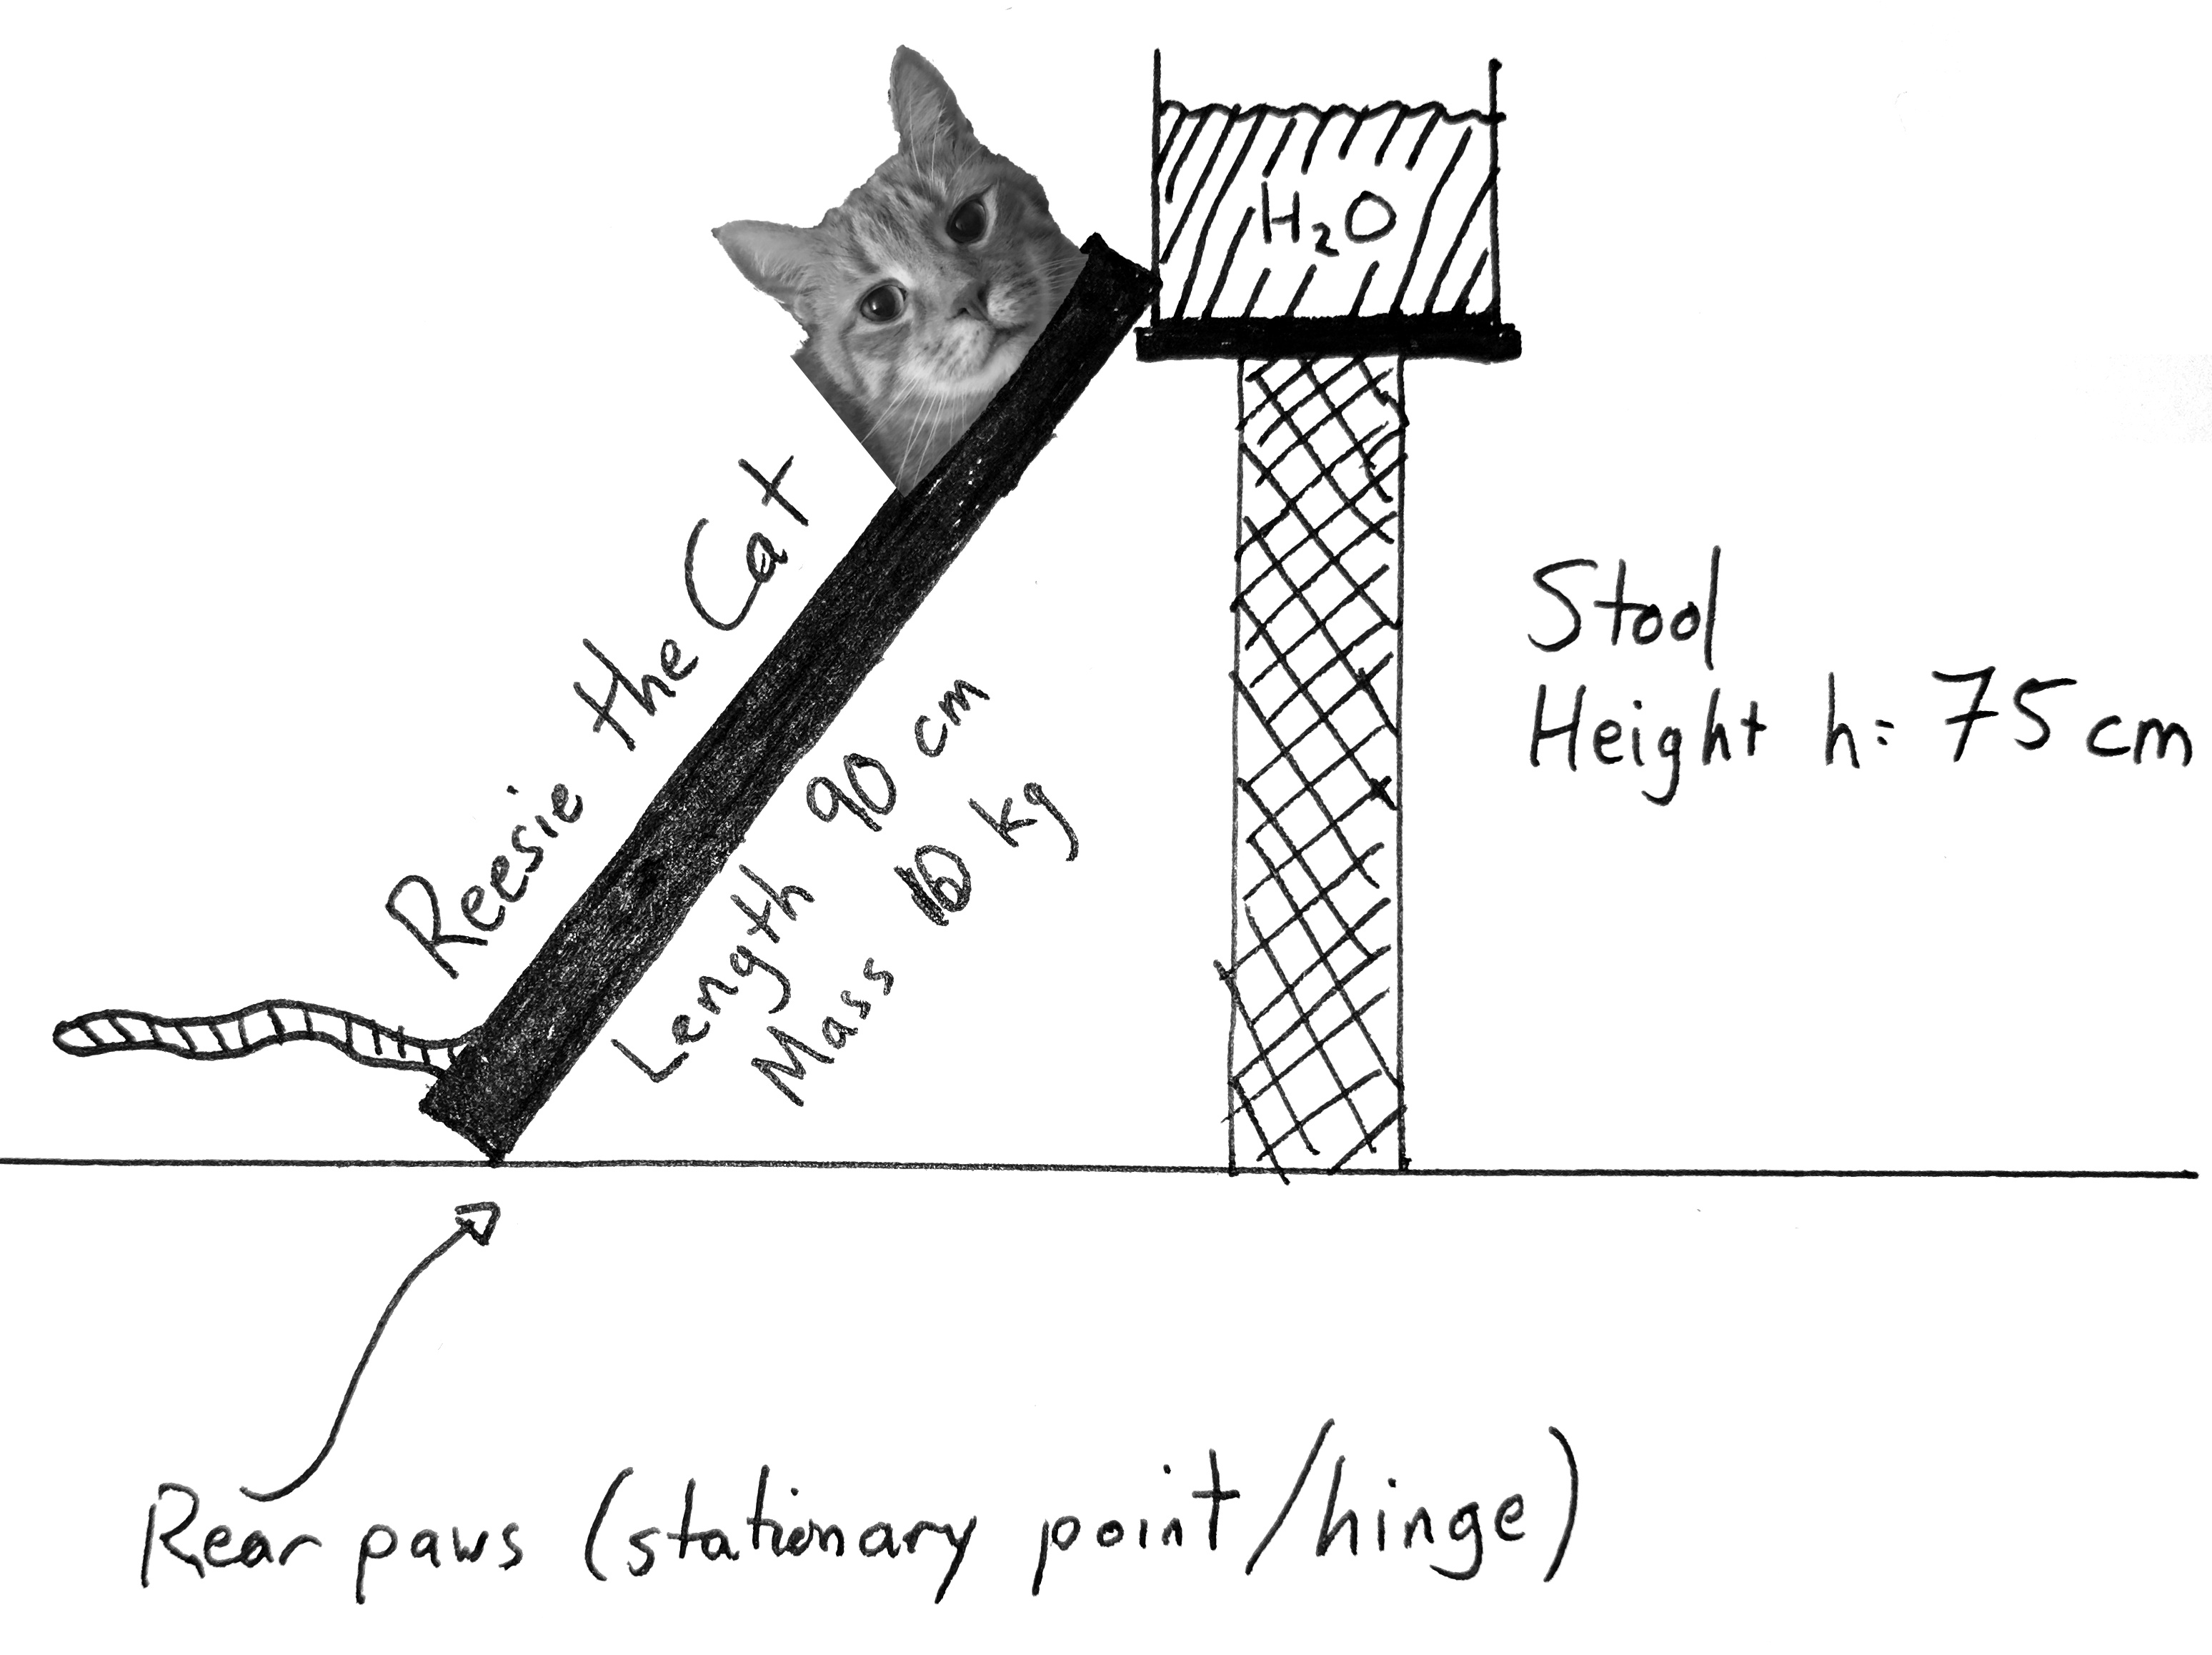 H₂O
Reesie the Cat
Length 90 cm
Mass 10 kg
Stool
Height h = 75 cm
Rear paws (stationary point/hinge)